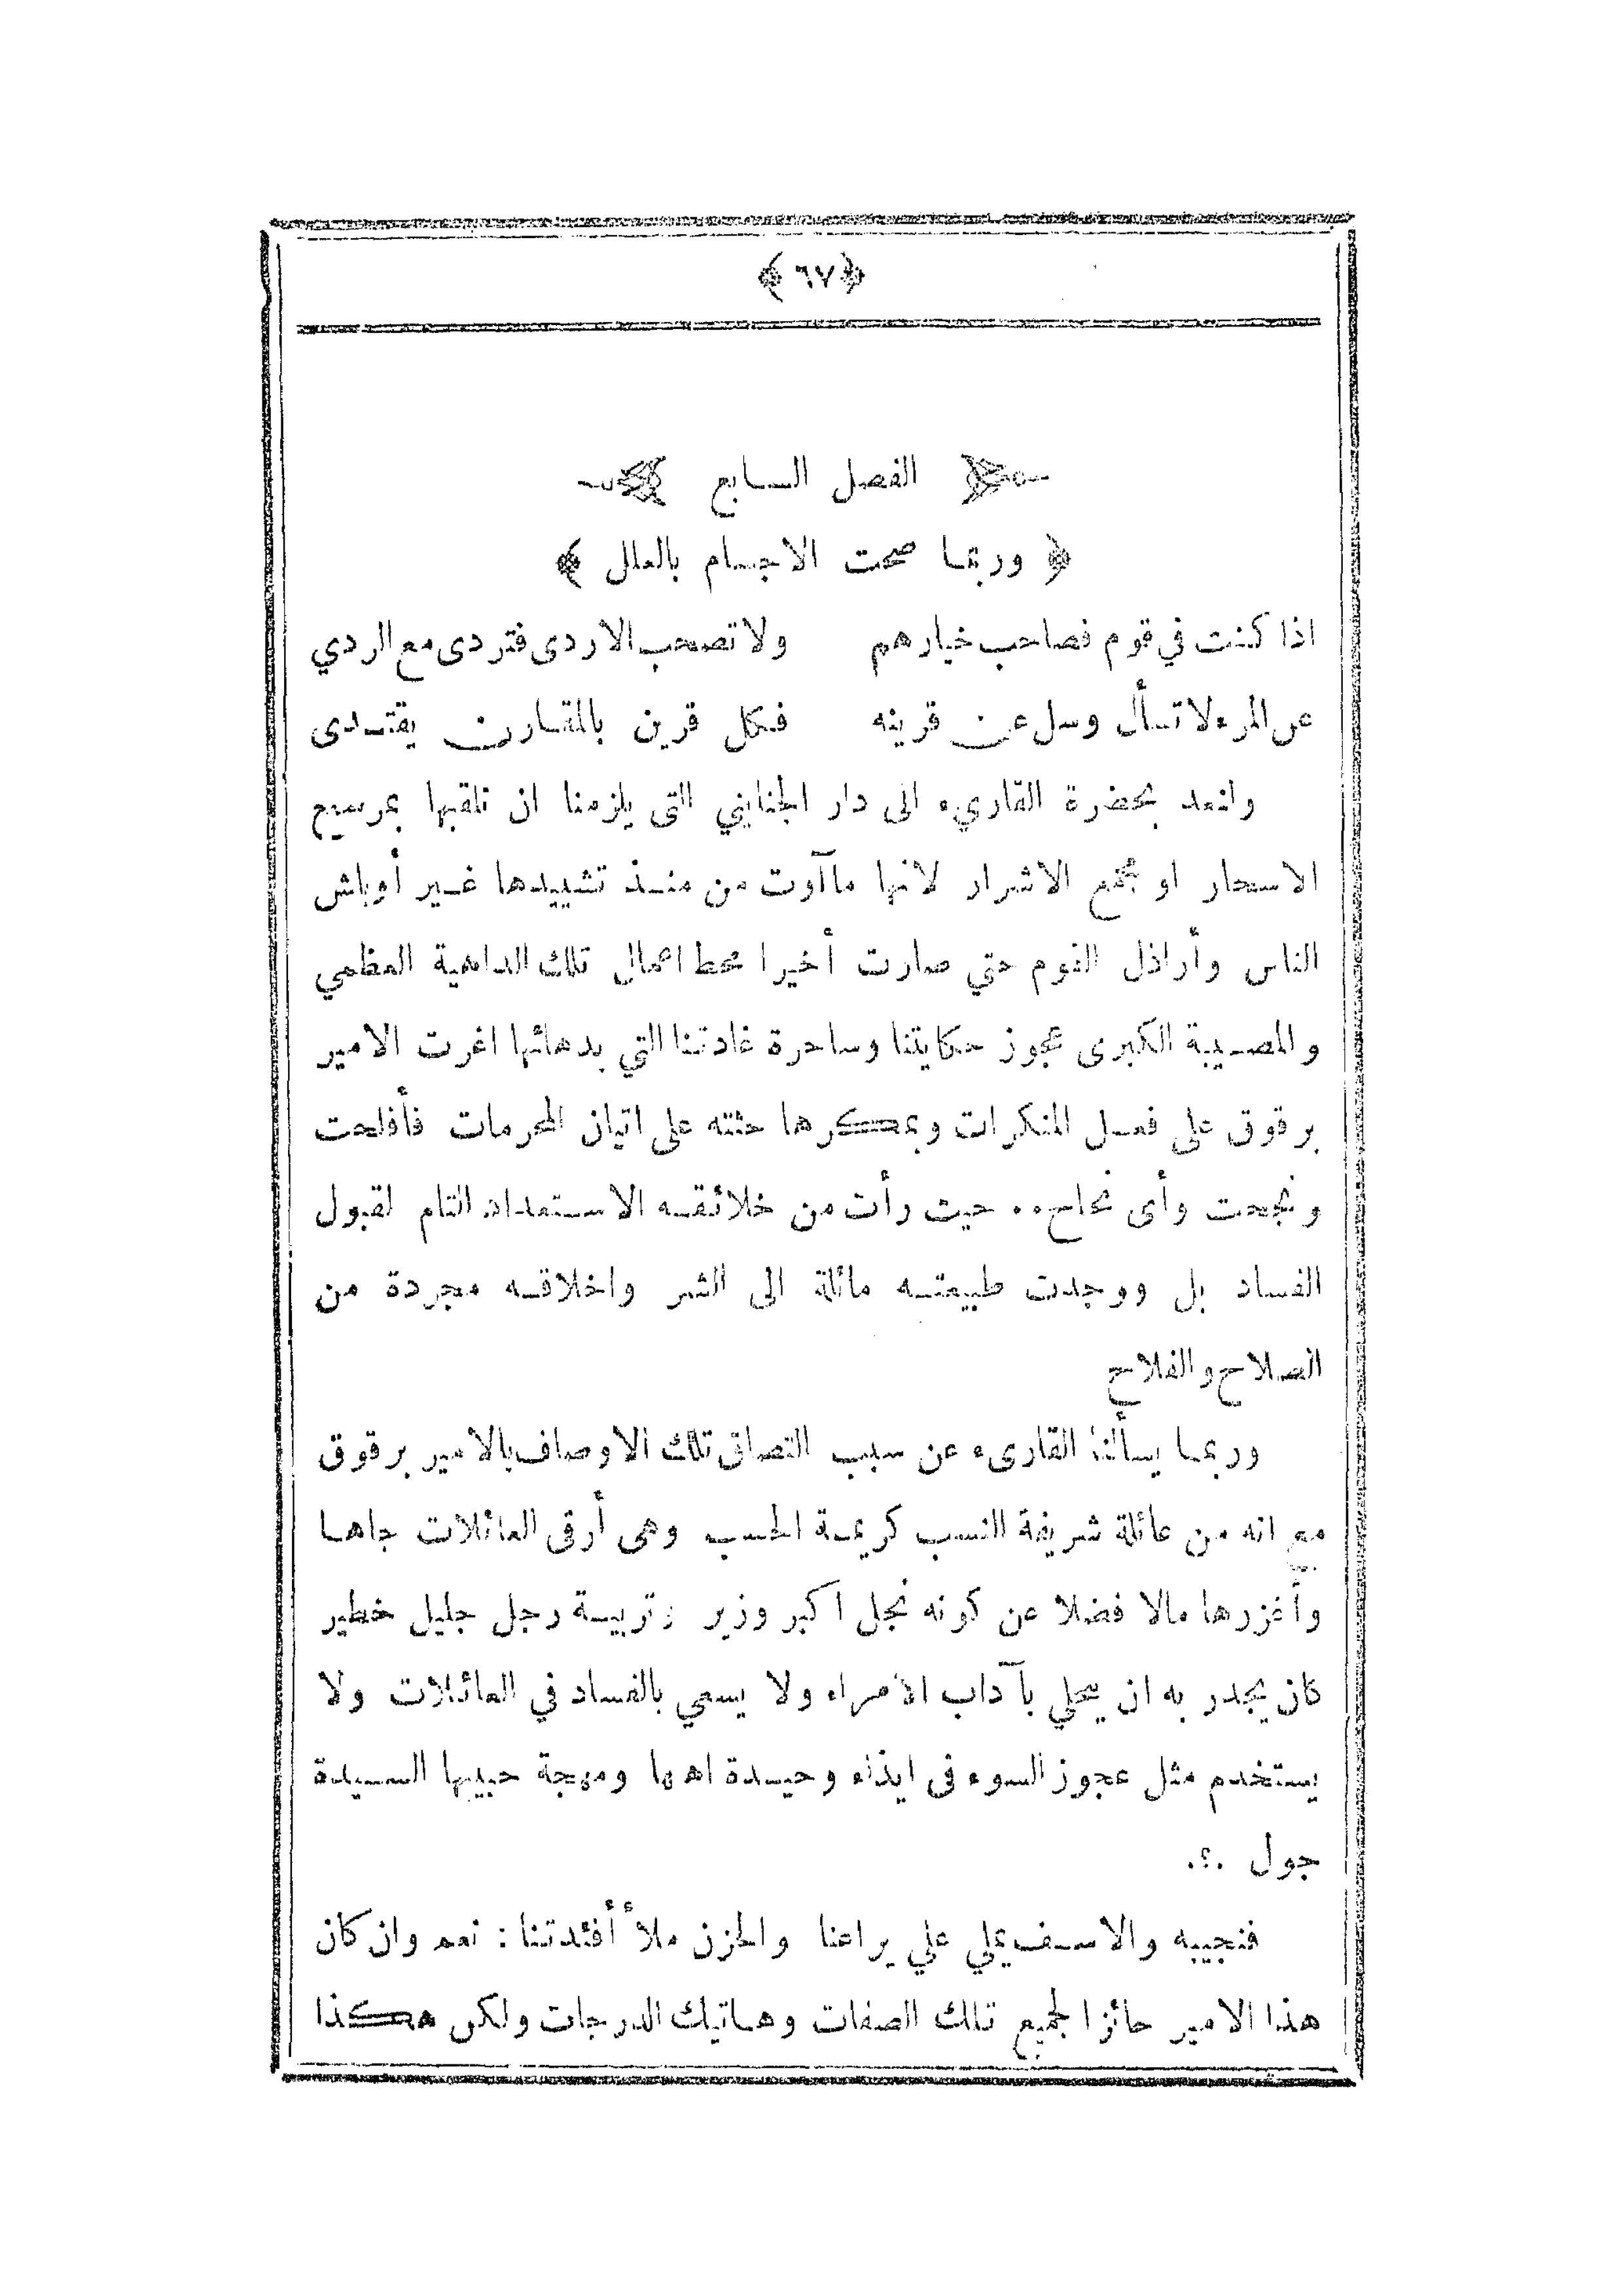 ﴿ ٦٧ ﴾
الفصل السابع
﴿ وربما صحت الاجسام بالعلل ﴾
اذا كنت في قوم فصاحب خيارهم ولا تصحب الاردى فتردى مع الردي
عن المرء لا تسأل وسل عن قرينه فكل قرين بالمقارن يقتدى
ولنعد بحضرة القاريء الى دار الجنايني التى يلزمنا ان نلقبها بمرسح
الاسحار او مجمع الاشرار لانها ماآوت من منذ تشييدها غير أوباش
الناس وأراذل القوم حتي صارت أخيرا محط اعمال تلك الداهية العظمي
والمصيبة الكبرى عجوز حكايتنا وساحرة غادتنا التي بدهائها اغرت الامير
برقوق على فعل المنكرات وبمكرها حثته على اتيان المحرمات فأفلحت
ونجحت وأى نجاح.. حيث رأت من خلائقه الاستعداد التام لقبول
الفساد بل ووجدت طبيعته مائلة الى الشر واخلاقه مجردة من
الصلاح والفلاح
وربما يسألنا القارىء عن سبب التصاق تلك الاوصاف بالامير برقوق
مع انه من عائلة شريفة النسب كريمة الحسب وهى أرقى العائلات جاها
وأغزرها مالا فضلا عن كونه نجل اكبر وزير وتربية رجل جليل خطير
كان يجدر به ان يتحلي بآداب الامراء ولا يسعي بالفساد في العائلات ولا
يستخدم مثل عجوز السوء فى ايذاء وحيدة اهلها ومهجة حبيبها السيدة
جول .؟.
فنجيبه والاسف يملي علي يراعنا والحزن ملأ أفئدتنا : نعم وان كان
هذا الامير حائزا لجميع تلك الصفات وهاتيك الدرجات ولكن هكذا